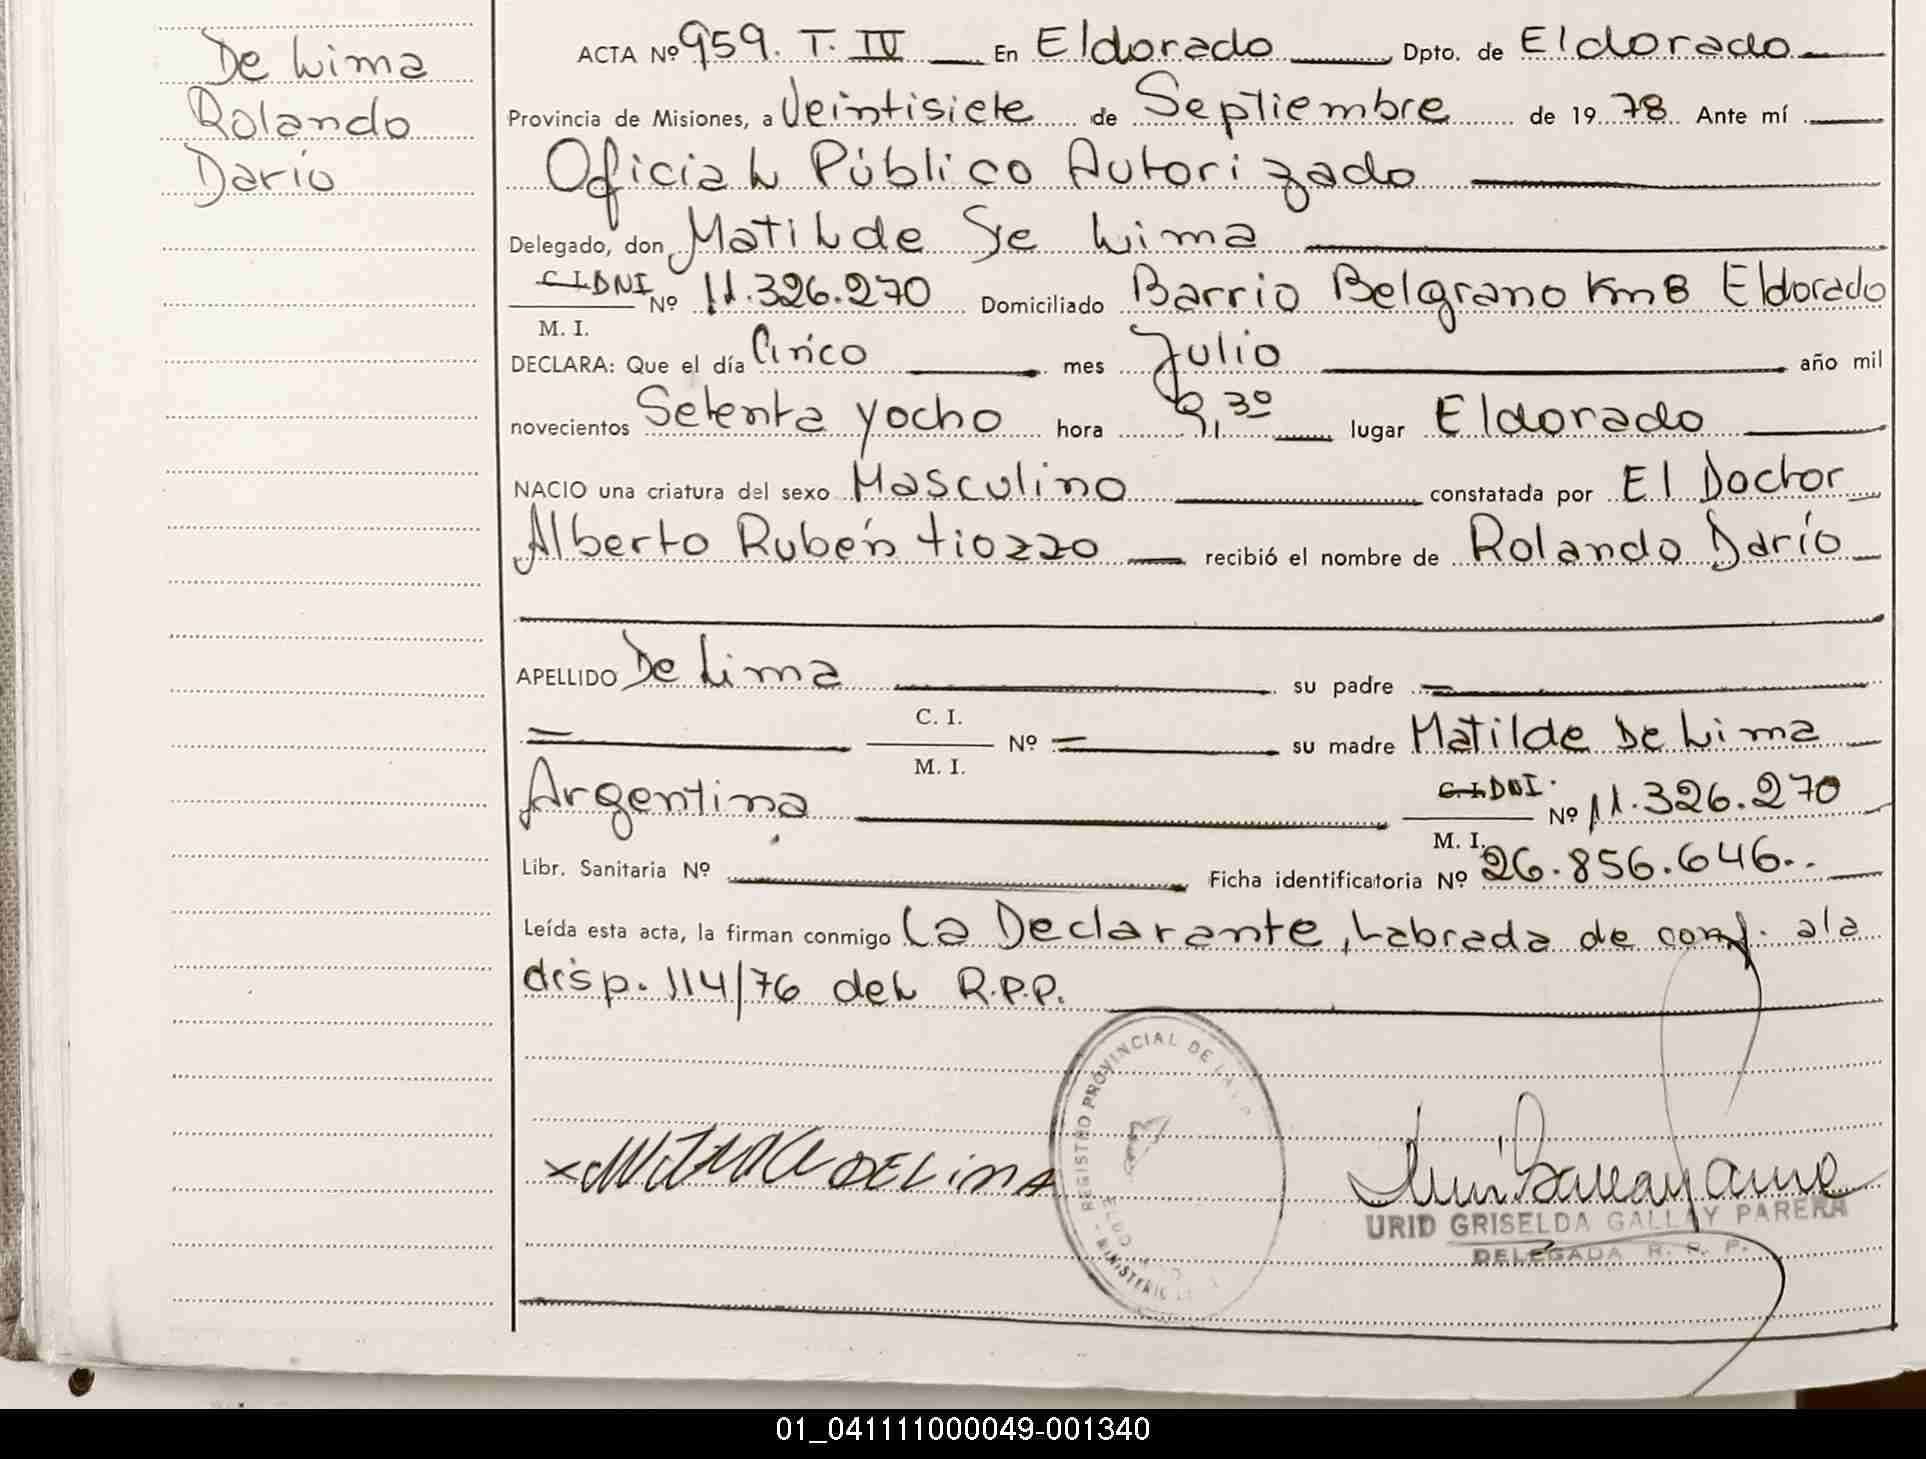 De Lima
Rolando
Darío
ACTA Nº 959. T. IV En Eldorado Dpto. de Eldorado
Provincia de Misiones, a Veintisiete de Septiembre de 1978 Ante mí
Oficial Público Autorizado
Delegado, don Matilde De Lima
C.I. DNI Nº 11.326.270 Domiciliado Barrio Belgrano Km 8 Eldorado
M. I.
DECLARA: Que el día Cinco mes Julio año mil
novecientos Setenta y ocho hora 9,30 lugar Eldorado
NACIO una criatura del sexo Masculino constatada por El Doctor
Alberto Rubén Tiozzo recibió el nombre de Rolando Darío
APELLIDO De Lima su padre
C. I.
Nº su madre Matilde De Lima
M. I.
Argentina C.I. DNI. Nº 11.326.270
M. I.
Libr. Sanitaria Nº Ficha identificatoria Nº 26.856.646..
Leída esta acta, la firman conmigo La Declarante, Labrada de conf. a la
disp. 114/76 del R.P.P.
REGISTRO PROVINCIAL DE LA
MINISTERIO
x Matilde DE LiMA
URID GRISELDA GALLAY PARERA
DELEGADA R. P. P.
01_041111000049-001340